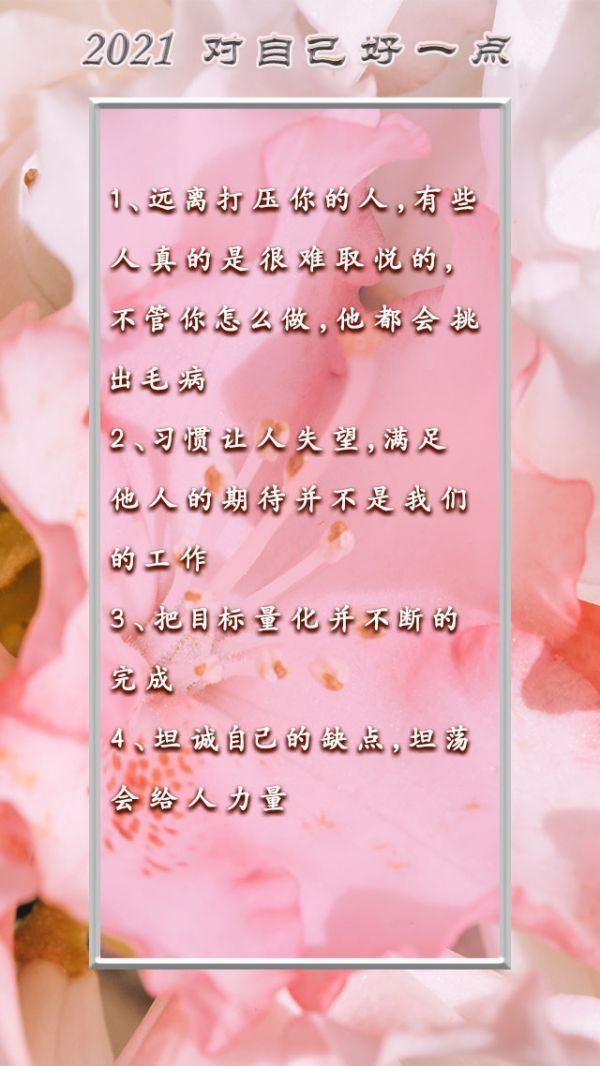 2021 对自己好一点
1、远离打压你的人,有些
人真的是很难取悦的,
不管你怎么做,他都会挑
出毛病
2、习惯让人失望,满足
他人的期待并不是我们
的工作
3、把目标量化并不断的
完成
4、坦诚自己的缺点,坦荡
会给人力量